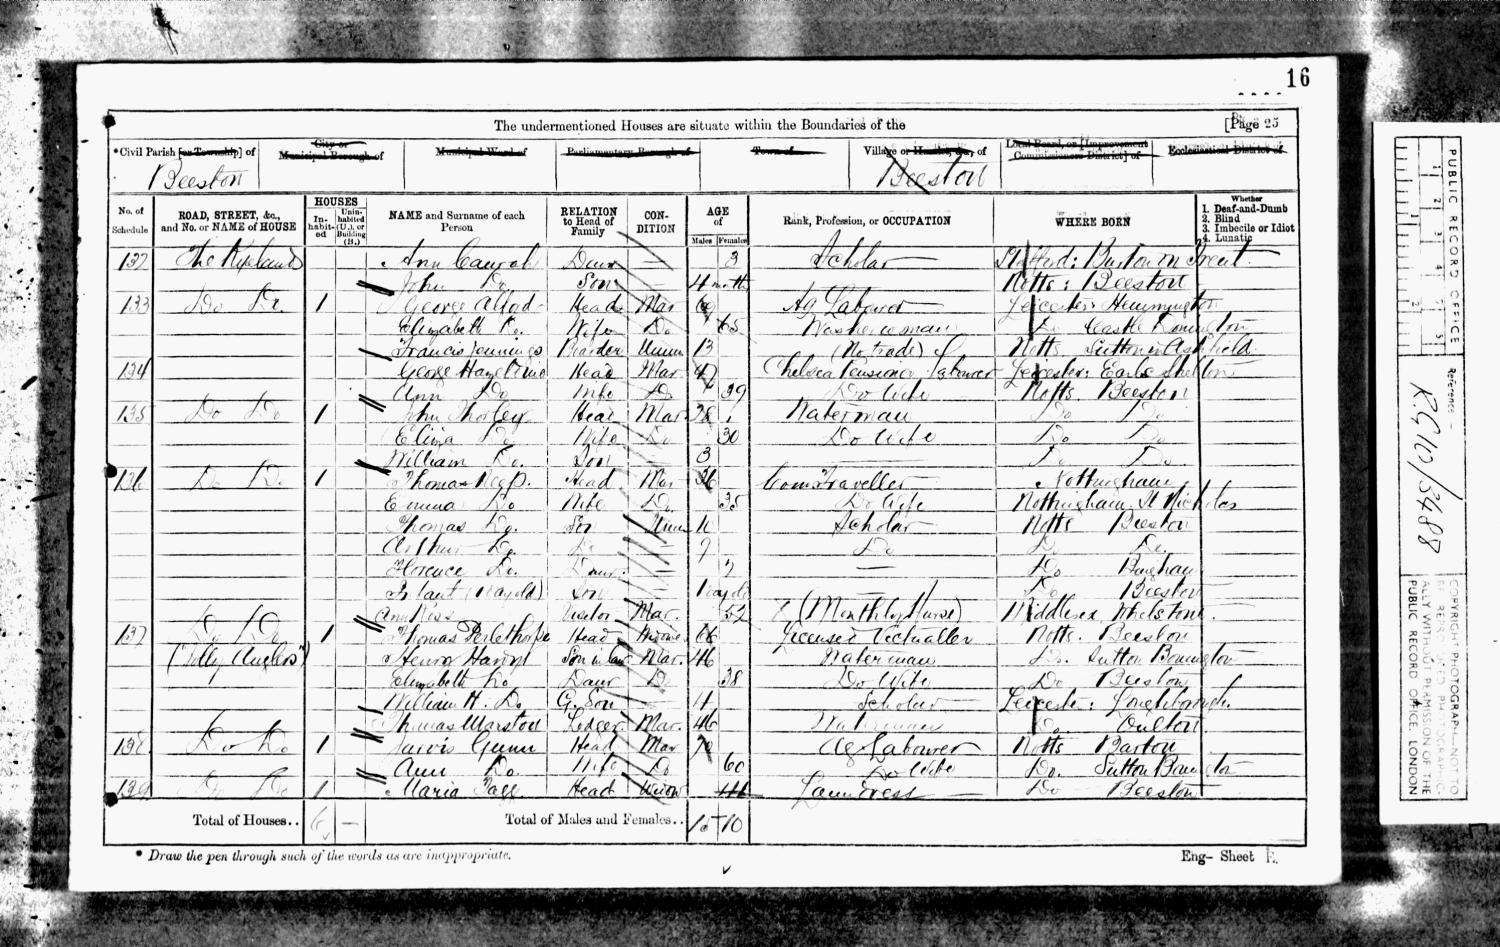 16
The undermentioned Houses are situate within the Boundaries of the
[Page 25
*Civil Parish [or Township] of
City or Municipal Borough of
Municipal Ward of
Parliamentary Borough of
Town of
Village or Hamlet, &c., of
Local Board, or [Improvement Commissioners District] of
Ecclesiastical District of
Beeston
Beeston
No. of Schedule
ROAD, STREET, &c., and No. or NAME of HOUSE
HOUSES
In-habit-ed
Unin-habited (U.), or Building (B.)
NAME and Surname of each Person
RELATION to Head of Family
CON-DITION
AGE of
Males
Females
Rank, Profession, or OCCUPATION
WHERE BORN
Whether
1. Deaf-and-Dumb
2. Blind
3. Imbecile or Idiot
4. Lunatic
132 The Rylands Ann Daur — 3 Scholar Stafford: Burton on Trent
John Do Son — 4 months Notts: Beeston
133 Do Do. 1 George Head Mar 69 Ag Labourer Leicester:
Elizabeth Do. Wife Do 65 Washerwoman Do Castle Donington
Francis Jennings Boarder Unm 13 (No trade) Notts Sutton in Ashfield
134 George Head Mar 47 Chelsea Pensioner Labourer Leicester: Earl Shelton
Ann Do Wife Do 39 Do Wife Notts. Beeston
135 Do Do 1 John Head Mar. 28 Waterman Do Do
Eliza Do Wife Do 30 Do Wife Do Do
William Do. Son 3 Do Do
136 Do Do 1 Thomas Head Mar 36 Com Traveller Nottingham
Emma Do Wife Do. 35 Do Wife Nottingham St Nicholas
Thomas Do. Son Unm 11 Scholar Notts Beeston
Arthur Do. Do — 9 Do Do Do.
Florence Do. Daur. — 7 — Do Bingham
Infant (1 day old) Son — 1 day old Do Beeston
Ann Visitor Mar. 52 (Monthly Nurse) Middlesex Whetstone
137 Do Do 1 Thomas Perlethorpe Head Widower 68 Licensed Victualler Notts. Beeston
("Jolly Anglers") Henry Son in law Mar. 46 Waterman Do. Sutton Bonington
Elizabeth Do Daur Do 38 Do Wife Do Beeston
William H. Do G. Son 4 Scholar Leicester: Loughborough
Thomas Marston Lodger Mar. 46 Waterman Do.
138 Do Do 1 Jarvis Gunn Head Mar 70 Ag Labourer Notts Barton
Ann Do Wife Do 60 Do Wife Do. Sutton Bonington
139 Do Do 1 Maria Head Widow 44 Laundress Do Beeston
Total of Houses.. 6 —
Total of Males and Females.. 15 10
* Draw the pen through such of the words as are inappropriate.
Eng– Sheet E.
PUBLIC RECORD OFFICE
Reference –
RG 10/3488
COPYRIGHT PHOTOGRAPH – NOT TO BE REPRODUCED PHOTOGRAPHICALLY WITHOUT PERMISSION OF THE PUBLIC RECORD OFFICE, LONDON